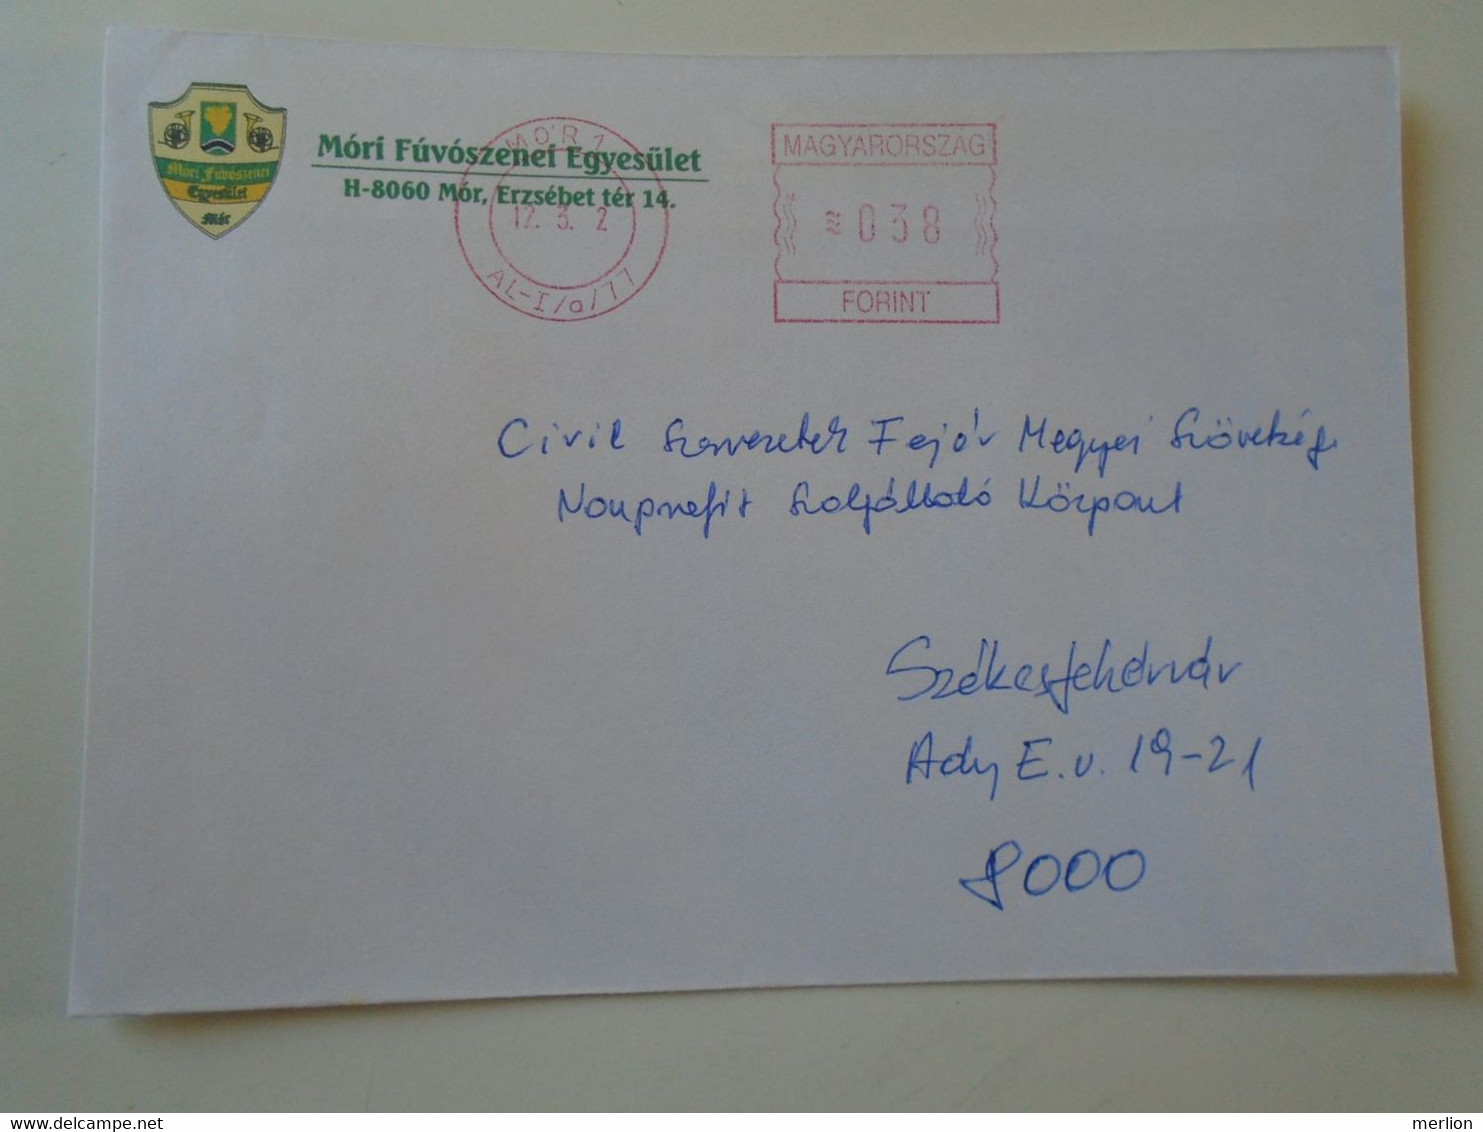 Móri Fúvószenei
Egyesület
Mór
Móri Fúvószenei Egyesület
H-8060 Mór, Erzsébet tér 14.
MÓR 1
12. 3. 2
AL-I/a/77
MAGYARORSZÁG
≈038
FORINT
Civil Szervezetek Fejér Megyei Szövetség
Nonprofit Szolgáltató Központ
Székesfehérvár
Ady E. u. 19-21
8000
merlion